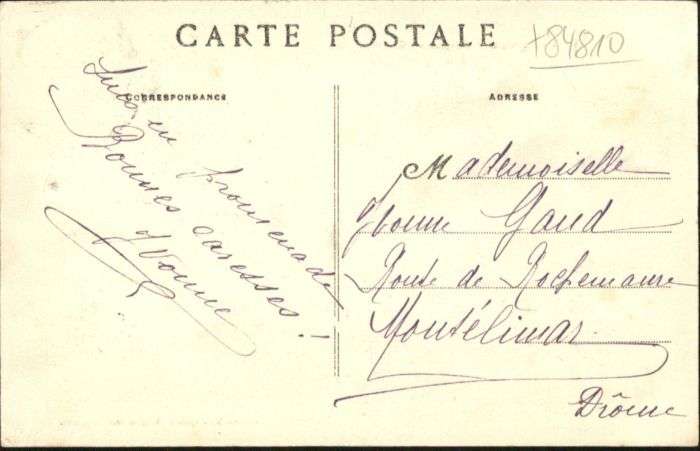 CARTE POSTALE
+84810
CORRESPONDANCE
ADRESSE
Suis en promenade
Bonnes caresses !
Yvonne
Mademoiselle
Yvonne Gaud
Route de Rochemaure
Montélimar
Drôme